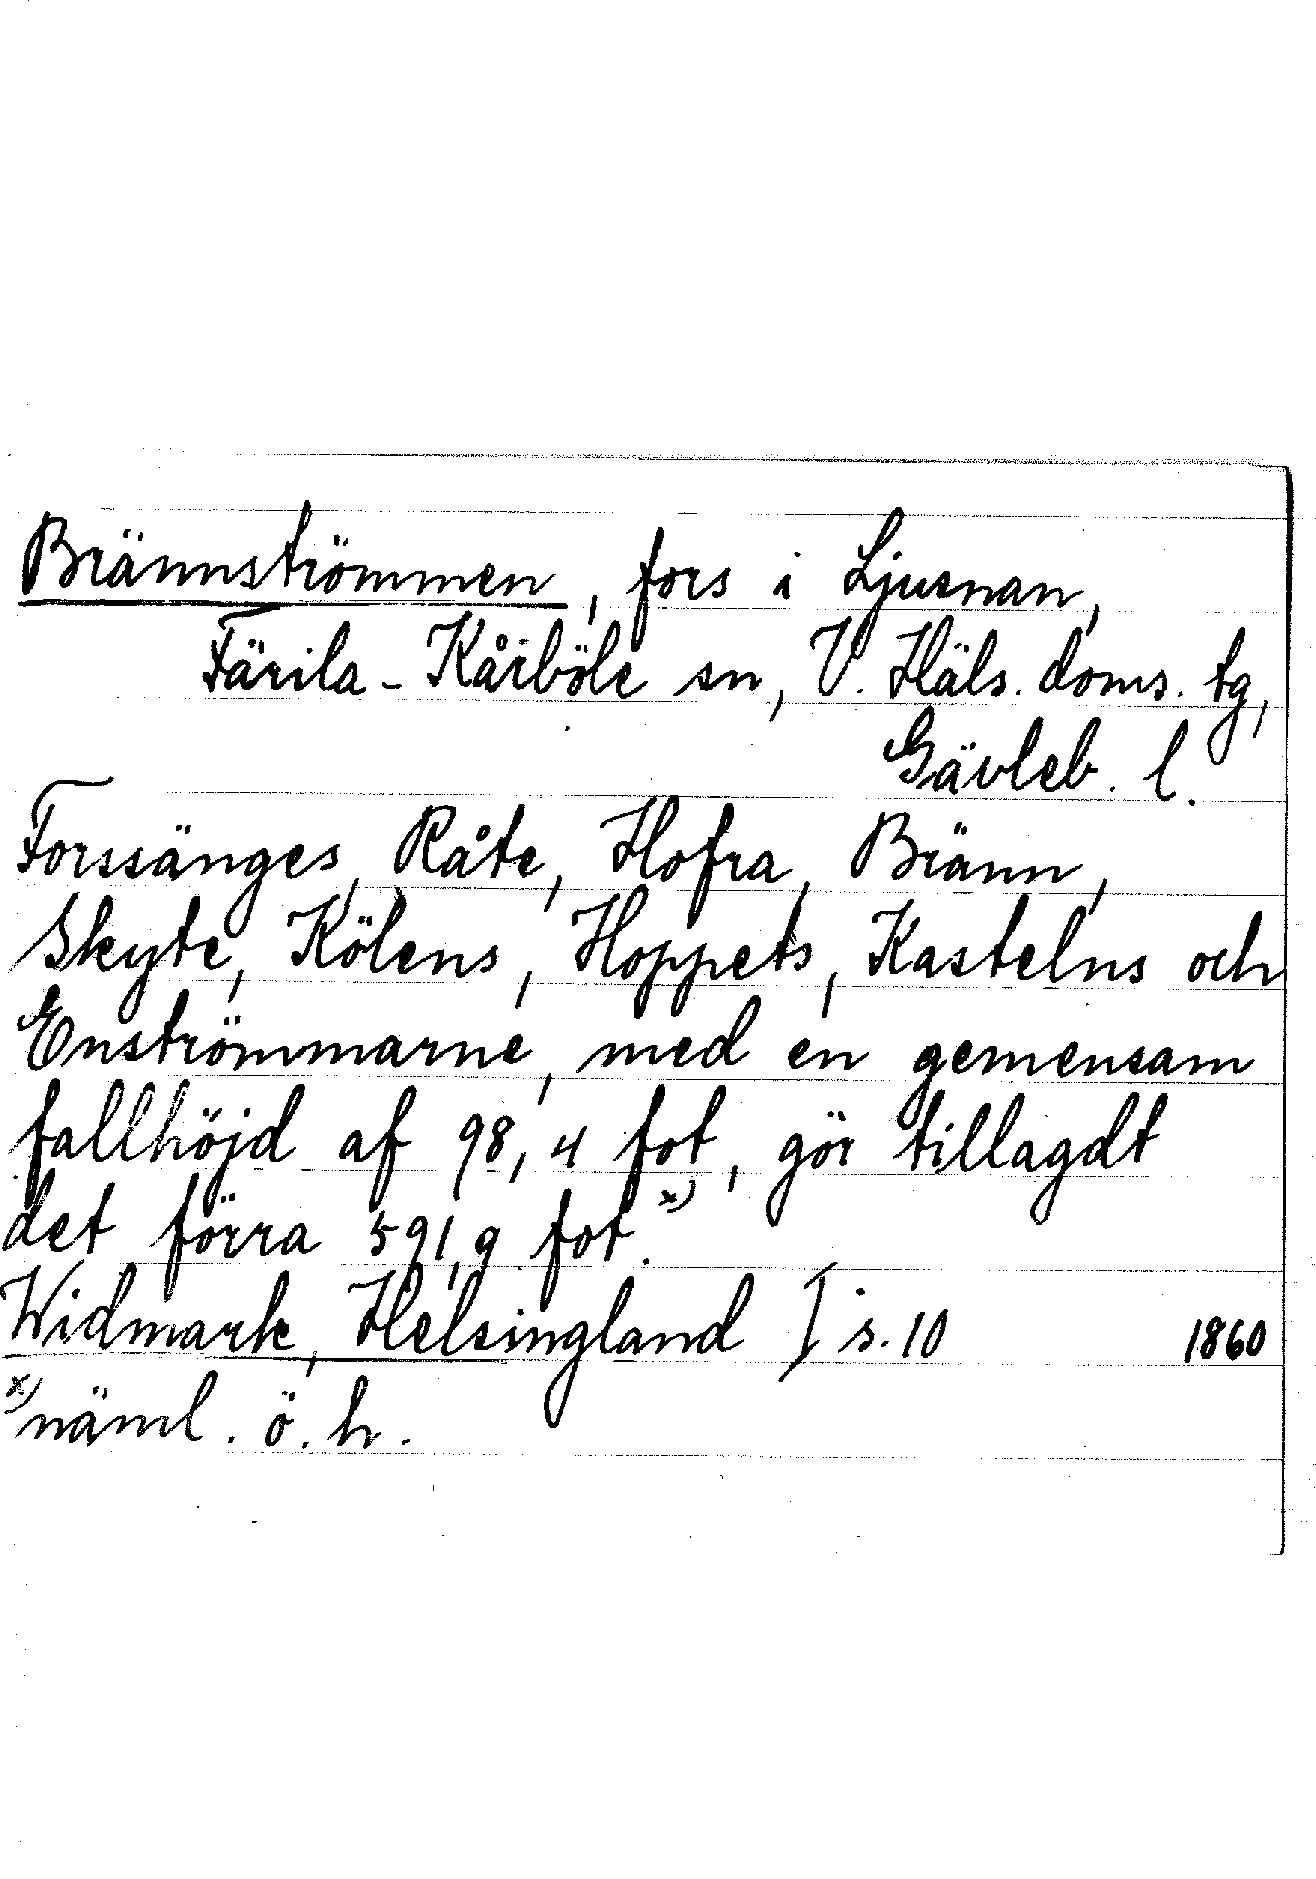 Brännströmmen, fors i Ljusnan,
Färila-Kårböle sn, V. Häls. doms. tg,
Gävleb. l.
Forssänges, Råte, Hofra, Bränn,
Skyte, Kölens, Hoppets, Kastelns och
Enströmmarne, med en gemensam
fallhöjd af 98,4 fot, gör tillagdt
det förra 591,9 fot.x)
Widmark, Helsingland I s. 10 1860
x) näml. ö. h.